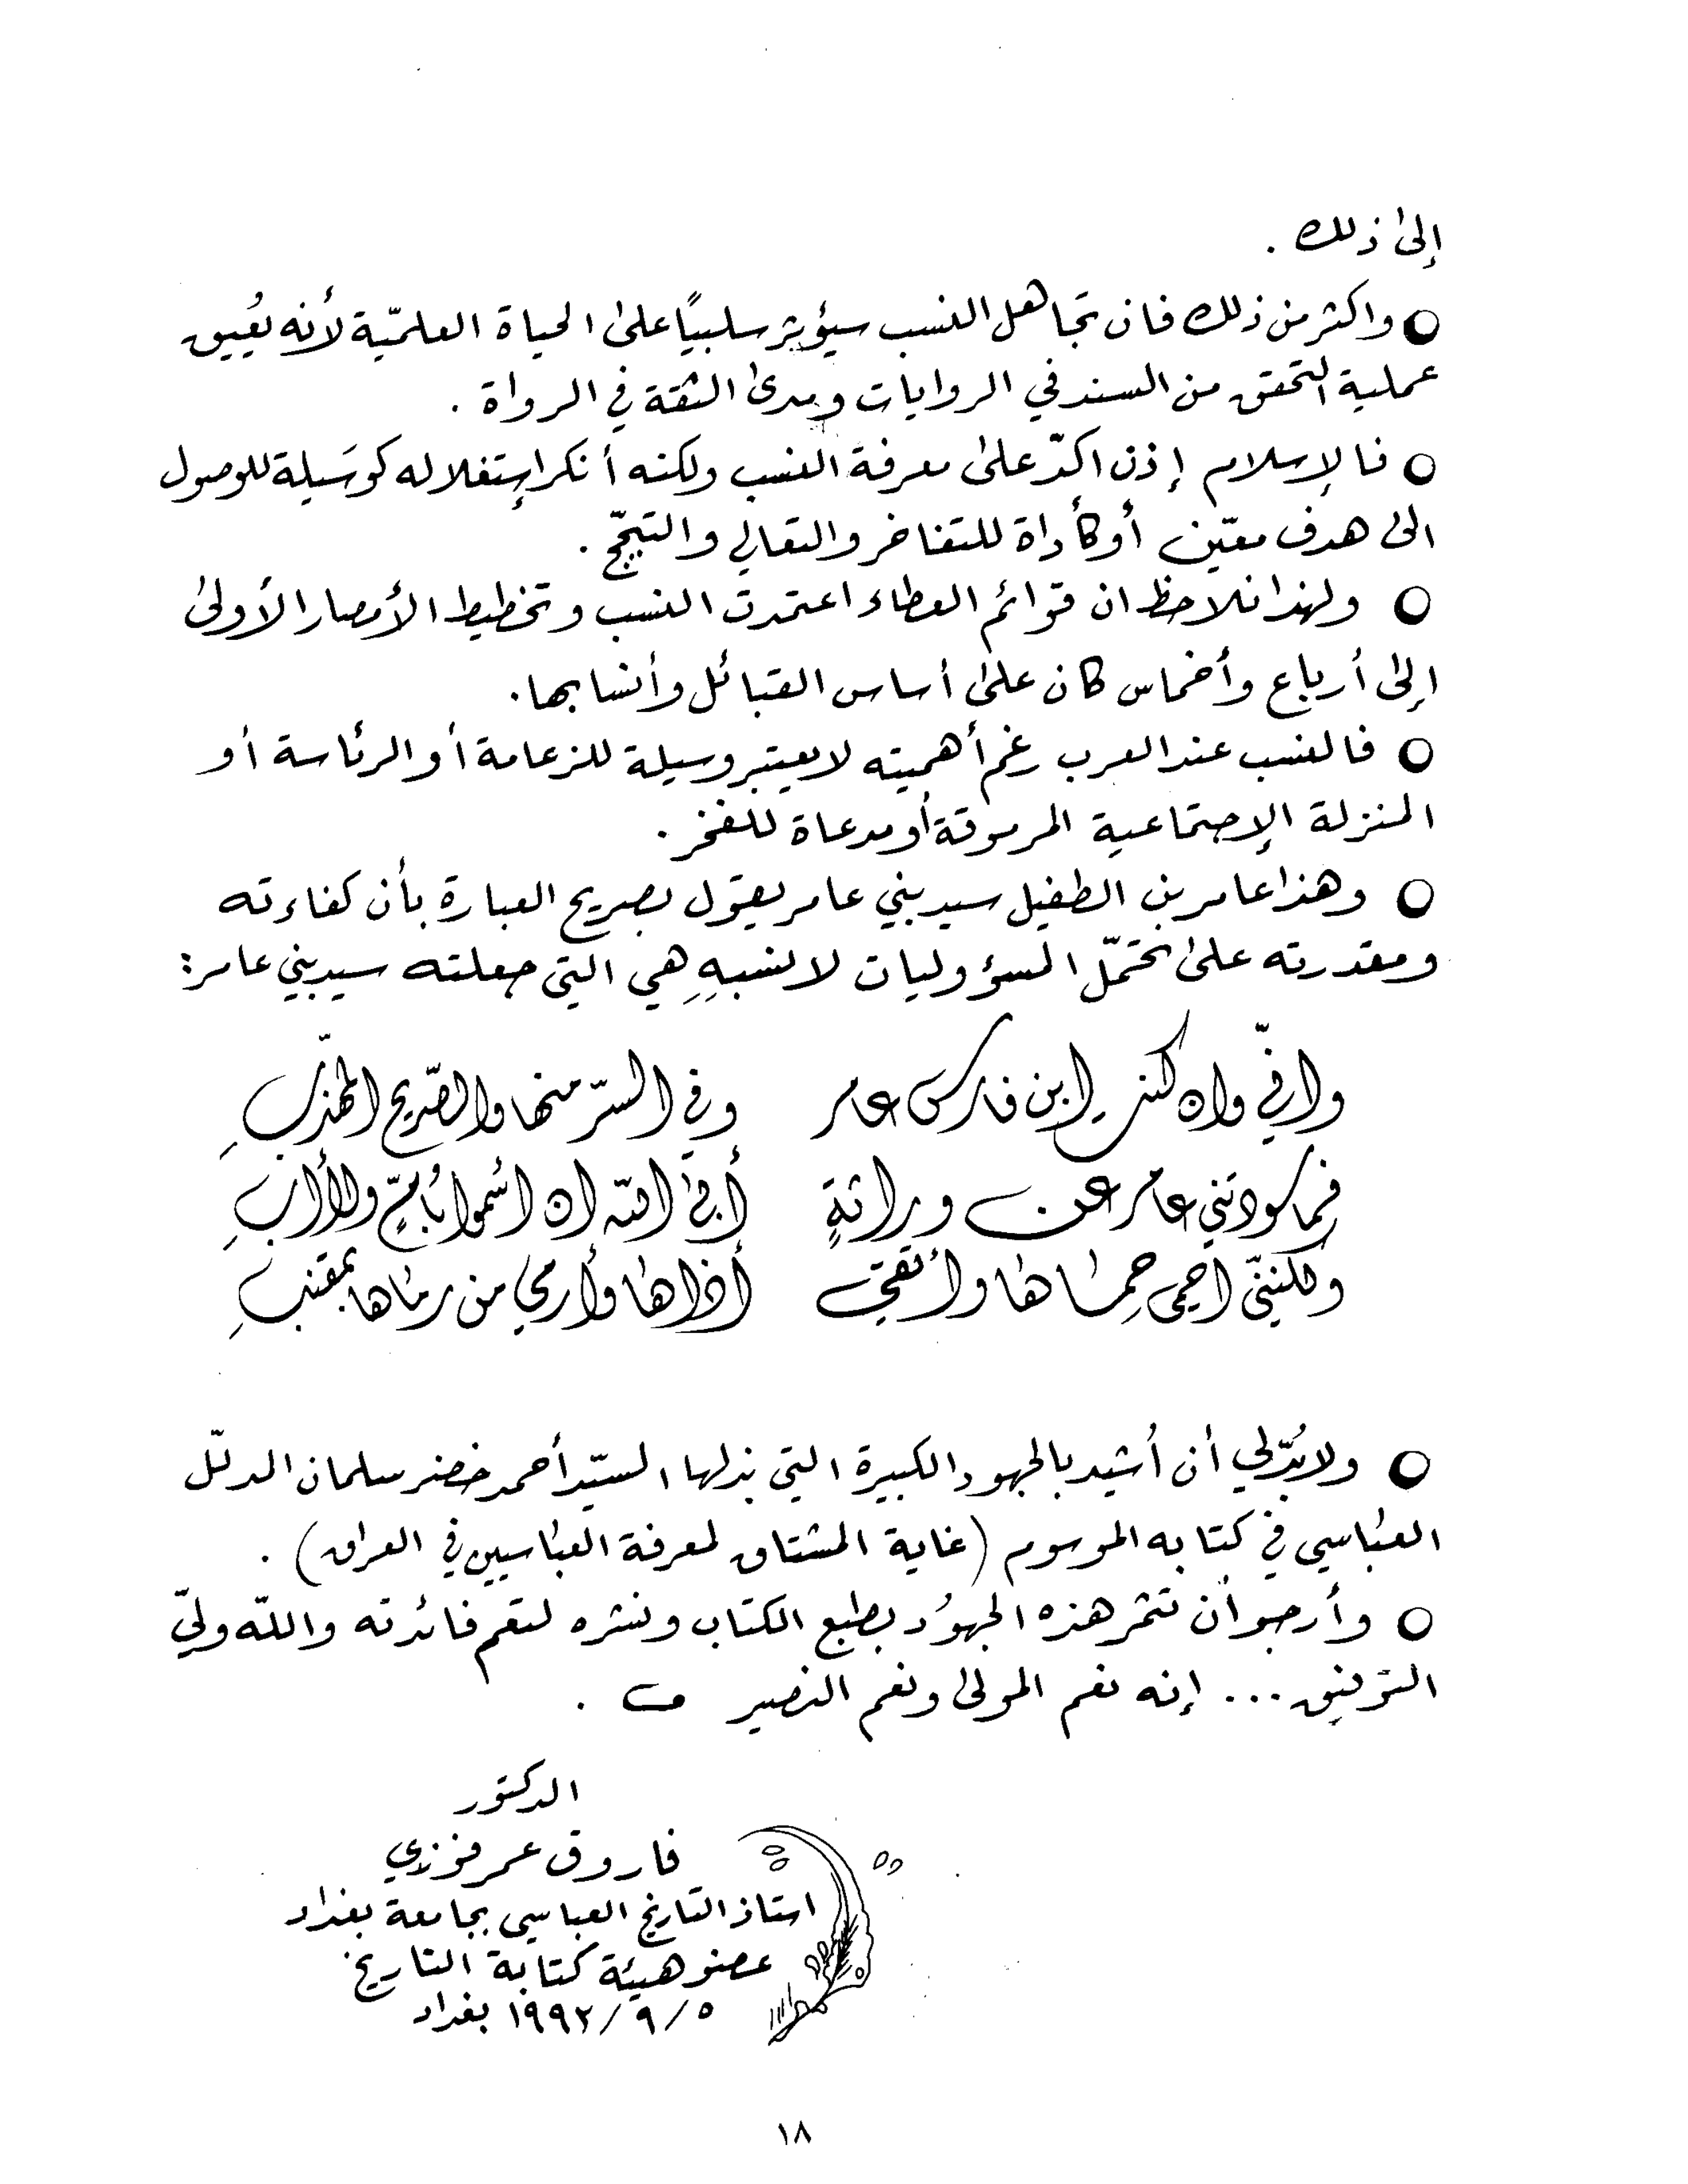 إلى ذلك .
○ واكثر من ذلك فان تجاهل النسب سيؤثر سلبيًا على الحياة العلميّة لأنه يُعيق
عملية التحقق من السند في الروايات ومدى الثقة في الرواة .
○ فالإسلام إذن اكدّ على معرفة النسب ولكنه أنكر إستغلاله كوسَيلة للوصول
الى هدف معيّن أو كأداة للتفاخر والتعالي والتبجّح .
○ ولهذا نلاحظ ان قوائم العطاء اعتمدت النسب وتخطيط الأمصار الأولى
إلى أرباع وأخماس كان على أساس القبائل وأنسابها .
○ فالنسب عند العرب رغم أهميته لا يعتبر وسيلة للزعامة أو الرئاسة أو
المنزلة الإجتماعية المرموقة أو مدعاة للفخر .
○ وهذا عامر بن الطفيل سيد بني عامر يقول بصريح العبارة بأن كفاءته
ومقدرته على تحمّل المسؤوليات لا نسبهِ هي التي جعلته سيد بني عامر :
واني وان كنت ابن فارس عامر وفي السرّ منها والصّريح المهذّبِ
فما سودتني عامر عن وراثةٍ أبى الله ان اسموا بأمٍّ ولا أبِ
ولكننّي احمي حِماها وأتقي أذاها وأرمي من رماها بمقنبِ
○ ولابُدّ لي أن أشيد بالجهود الكبيرة التي بذلها السيّد أحمد خضر سلمان الدلّل
العباسي في كتابه الموسوم (غاية المشتاق لمعرفة العباسيين في العراق) .
○ وأرجو أن تثمر هذه الجهوُد بطبع الكتاب ونشره لتعم فائدته واللّه وليّ
التوفيق ... إنه نعم المولى ونعم النصير .
الدكتور
فاروق عمر فوزي
استاذ التاريخ العباسي بجامعة بغداد
عضو هيئة كتابة التاريخ
٥/٩/١٩٩٢ بغداد
١٨